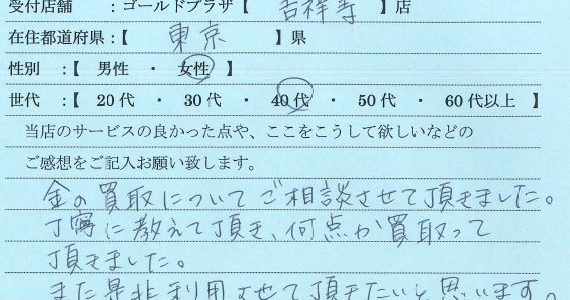 受付店舗 :ゴールドプラザ【 吉祥寺 】店
在住都道府県:【 東京 】県
性別 :【 男性 ・ 女性 】
世代 :【 20代 ・ 30代 ・ 40代 ・ 50代 ・ 60代以上 】
当店のサービスの良かった点や、ここをこうして欲しいなどの
ご感想をご記入お願い致します。
金の買取についてご相談させて頂きました。
丁寧に教えて頂き、何点か買取って
頂きました。
また是非利用させて頂きたいと思います。